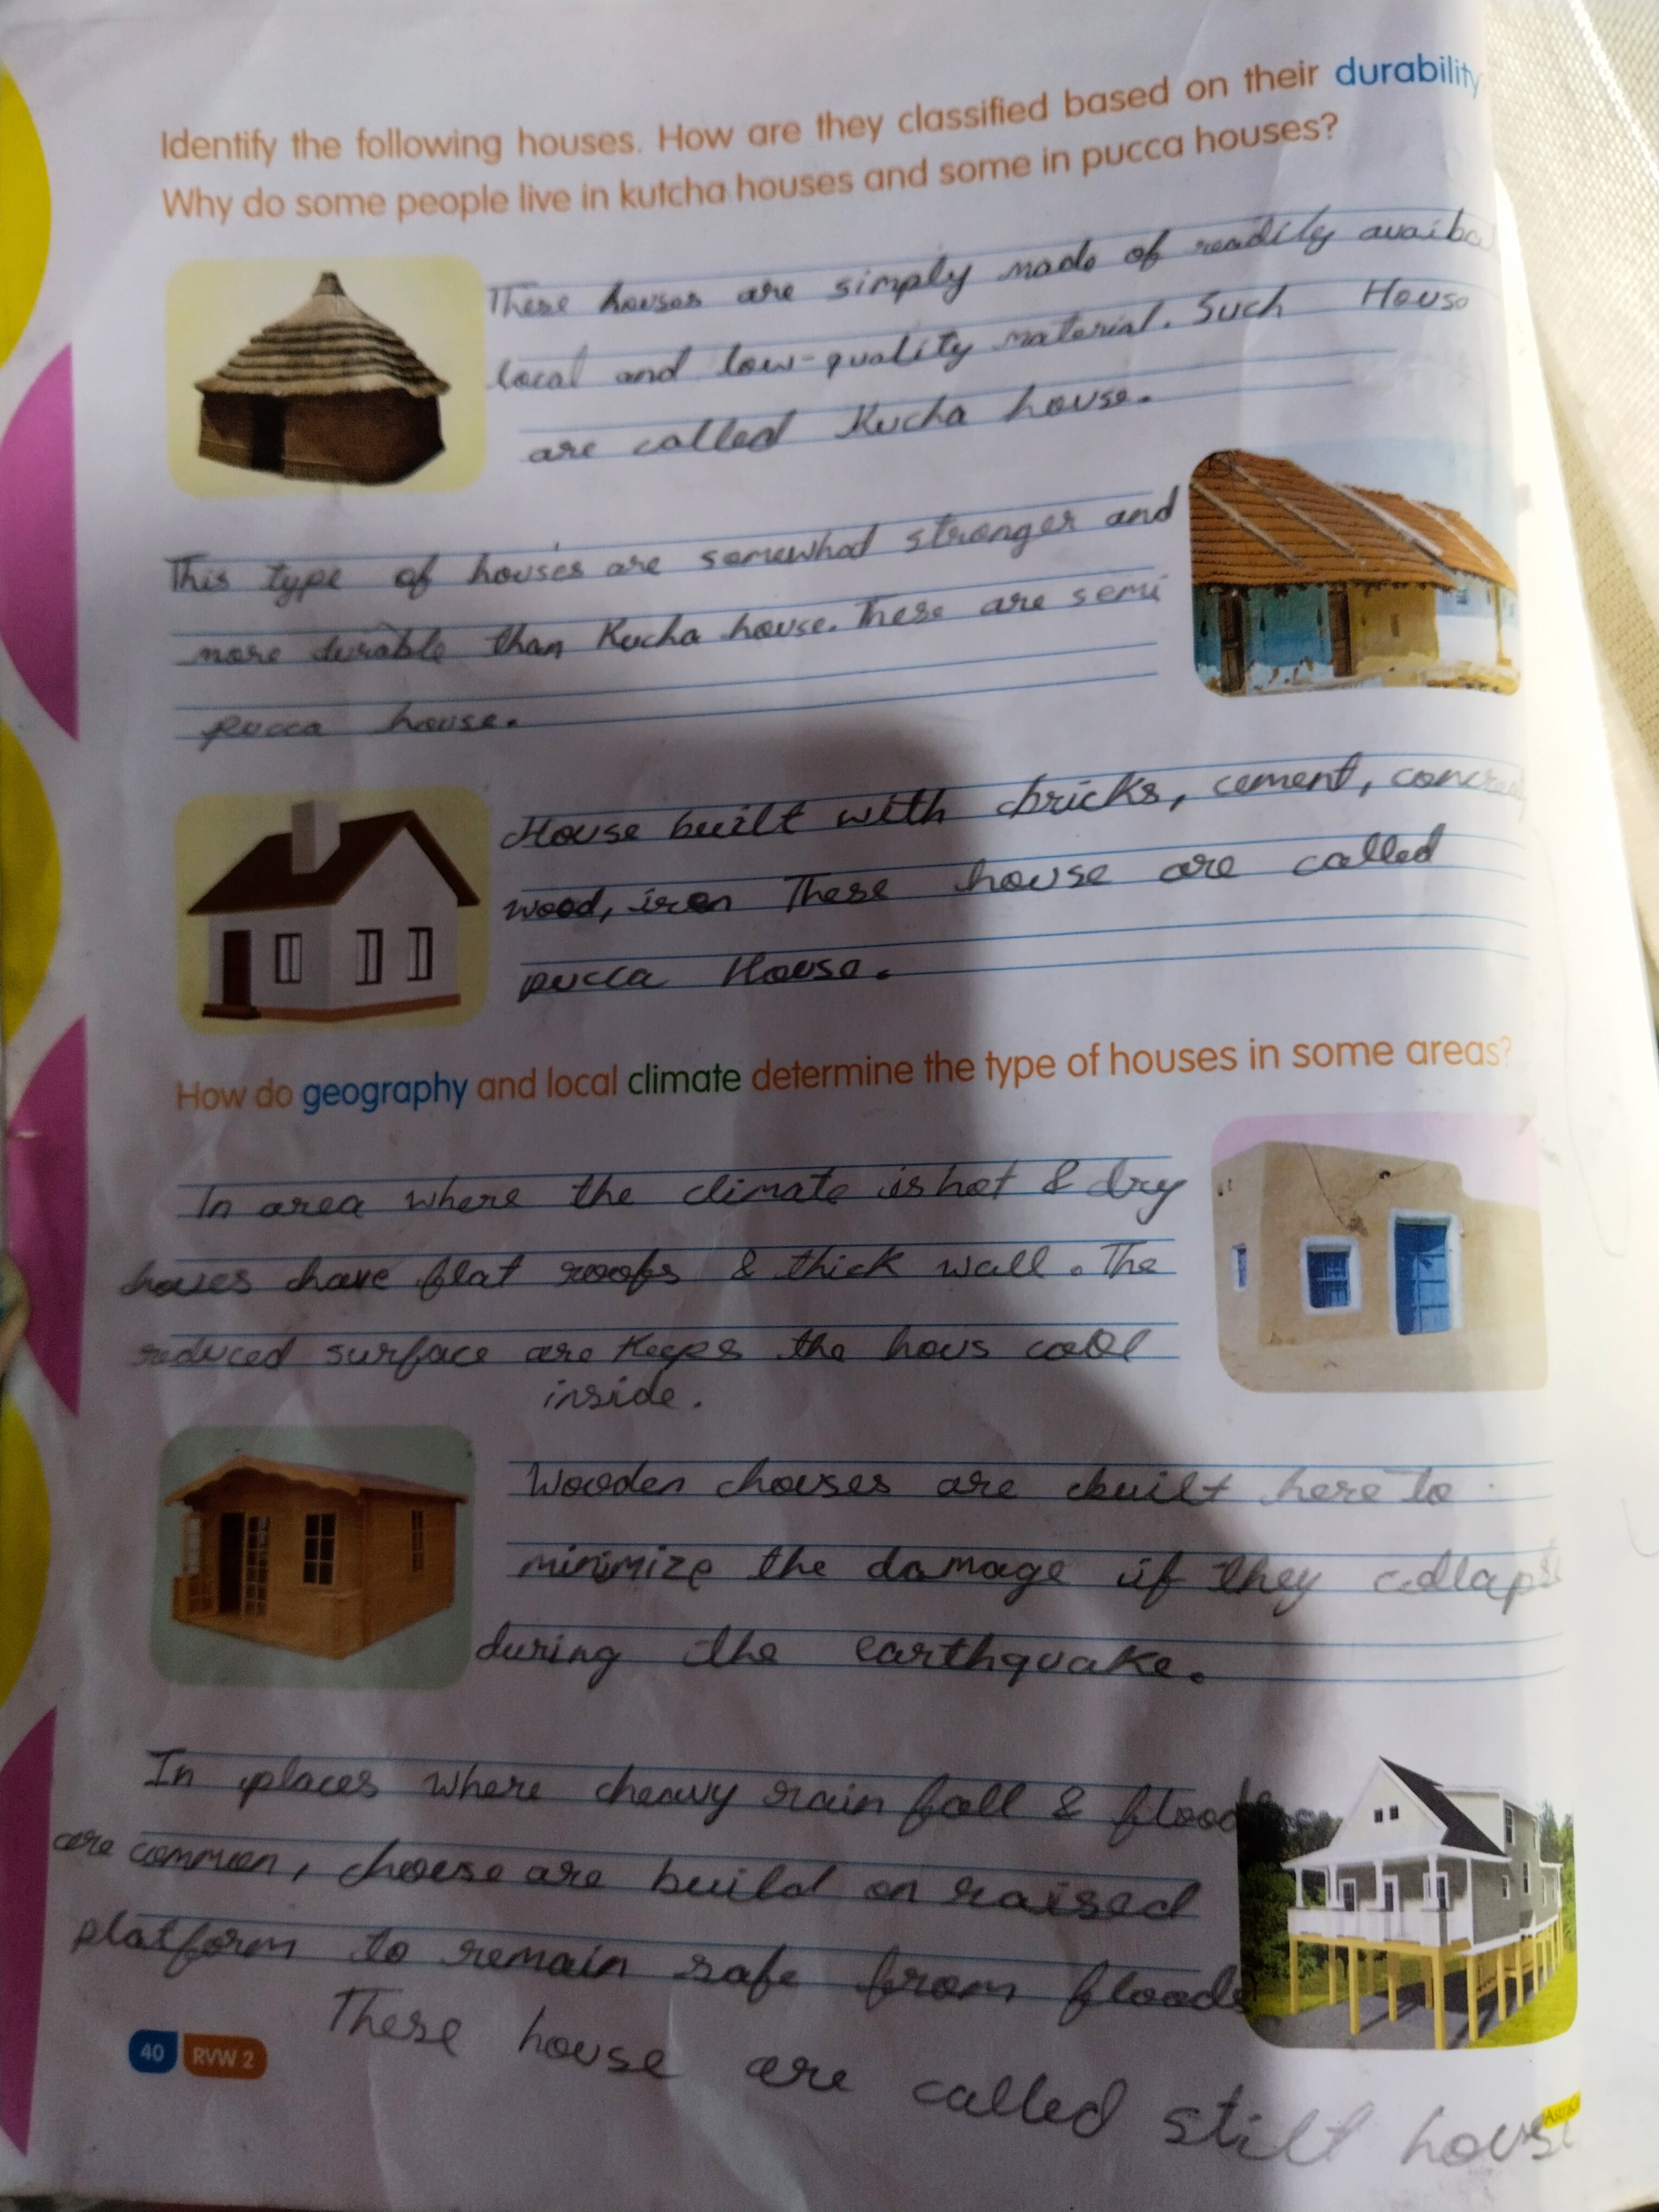 Identify the following houses. How are they classified based on their durability
Why do some people live in kutcha houses and some in pucca houses?
These houses are simply made of readily
local and low-quality material. Such House
are called Kucha house.
This type of houses are somewhat stronger and
more durable than Kucha house. These are semi
pucca house.
House built with bricks, cement,
wood, iron These house are called
pucca House.
How do geography and local climate determine the type of houses in some areas?
In area where the climate is hot & dry
houes have flat roofs & thick wall. The
reduced surface are Keeps the hous cool
inside.
Wooden houses are built here to
minimize the damage if they
during the earthquake.
In places where heavy rain fall & floods
are common, house are build on raised
platform to remain safe from floods
These house are called stilt
40 RVW 2